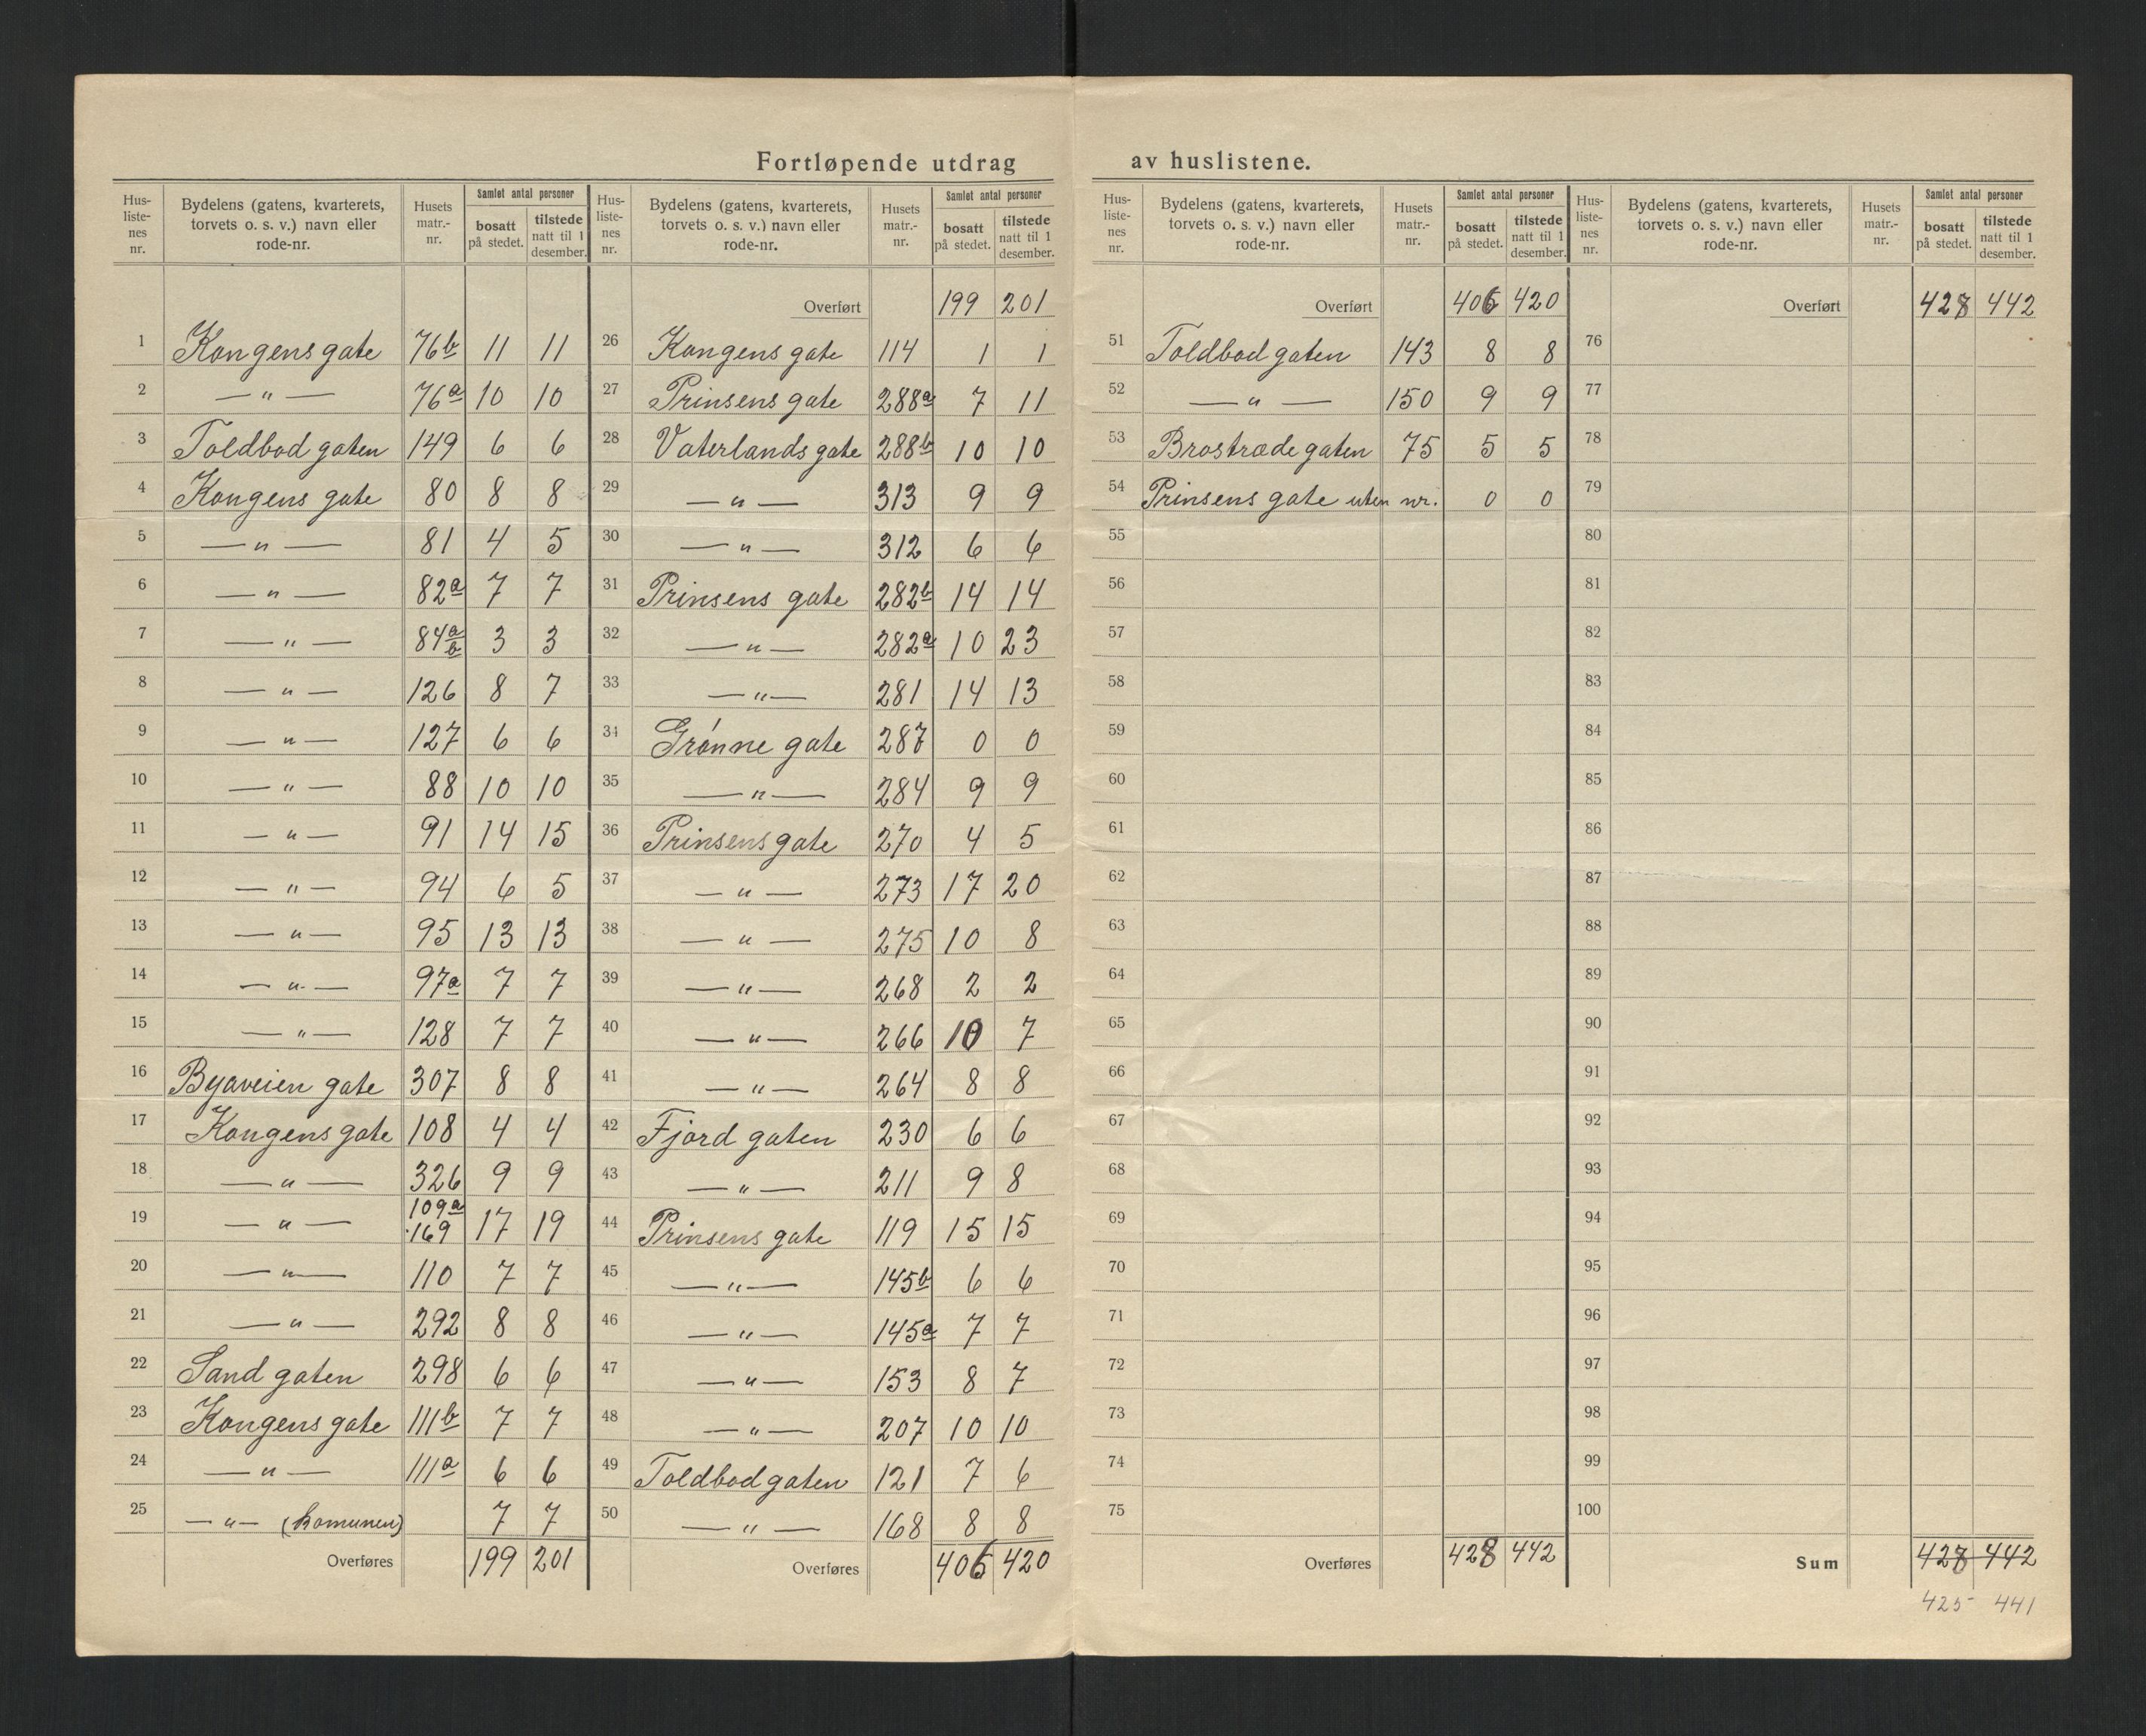 Fortløpende utdrag av huslistene.
Hus-listenes nr. Bydelens (gatens, kvarterets, torvets o. s. v.) navn eller rode-nr. Husets matr.-nr. Samlet antal personer bosatt på stedet. tilstede natt til 1 desember.
1 Kongens gate 76b 11 11
2 — " — 76a 10 10
3 Toldbod gaten 149 6 6
4 Kongens gate 80 8 8
5 — " — 81 4 5
6 — " — 82a 7 7
7 — " — 84a b 3 3
8 — " — 126 8 7
9 — " — 127 6 6
10 — " — 88 10 10
11 — " — 91 14 15
12 — " — 94 6 5
13 — " — 95 13 13
14 — " — 97a 7 7
15 — " — 128 7 7
16 Byaveien gate 307 8 8
17 Kongens gate 108 4 4
18 — " — 326 9 9
19 — " — 109a 169 17 19
20 — " — 110 7 7
21 — " — 292 8 8
22 Sand gaten 298 6 6
23 Kongens gate 111b 7 7
24 — " — 111a 6 6
25 — " — (komunen) 7 7
Overføres 199 201
Hus-listenes nr. Bydelens (gatens, kvarterets, torvets o. s. v.) navn eller rode-nr. Husets matr.-nr. Samlet antal personer bosatt på stedet. tilstede natt til 1 desember.
Overført 199 201
26 Kongens gate 114 1 1
27 Prinsens gate 288a 7 11
28 Vaterlands gate 288b 10 10
29 — " — 313 9 9
30 — " — 312 6 6
31 Prinsens gate 282b 14 14
32 — " — 282a 10 23
33 — " — 281 14 13
34 Grønne gate 287 0 0
35 — " — 284 9 9
36 Prinsens gate 270 4 5
37 — " — 273 17 20
38 — " — 275 10 8
39 — " — 268 2 2
40 — " — 266 10 7
41 — " — 264 8 8
42 Fjord gaten 230 6 6
43 — " — 211 9 8
44 Prinsens gate 119 15 15
45 — " — 145b 6 6
46 — " — 145a 7 7
47 — " — 153 8 7
48 — " — 207 10 10
49 Toldbod gaten 121 7 6
50 — " — 168 8 8
Overføres 406 420
Hus-listenes nr. Bydelens (gatens, kvarterets, torvets o. s. v.) navn eller rode-nr. Husets matr.-nr. Samlet antal personer bosatt på stedet. tilstede natt til 1 desember.
Overført 406 420
51 Toldbod gaten 143 8 8
52 — " — 150 9 9
53 Brostræde gaten 75 5 5
54 Prinsens gate uten nr. 0 0
55
56
57
58
59
60
61
62
63
64
65
66
67
68
69
70
71
72
73
74
75
Overføres 428 442
Hus-listenes nr. Bydelens (gatens, kvarterets, torvets o. s. v.) navn eller rode-nr. Husets matr.-nr. Samlet antal personer bosatt på stedet. tilstede natt til 1 desember.
Overført 428 442
76
77
78
79
80
81
82
83
84
85
86
87
88
89
90
91
92
93
94
95
96
97
98
99
100
Sum 428 442
425 441